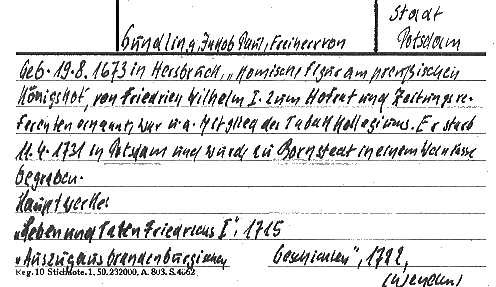 Stadt
Gundling, Jakob Paul, Freiherr von
Potsdam
Geb. 19.8.1673 in Hersbruck, „komische Figur am preußischen
Königshof, von Friedrich Wilhelm I. zum Hofrat und Zeitungsre-
ferenten ernannt, war u.a. Mitglied des Tabakkollegiums. Er starb
11.4.1731 in Potsdam und wurde zu Bornstedt in einem Weinfasse
begraben.
Hauptwerke:
„Leben und Taten Friedrichs I", 1715
„Auszug aus Brandenburgischen Geschichten", 1722,
Keg. 10 Stichnote. 1. 50. 232000. A. 803. S. 4662